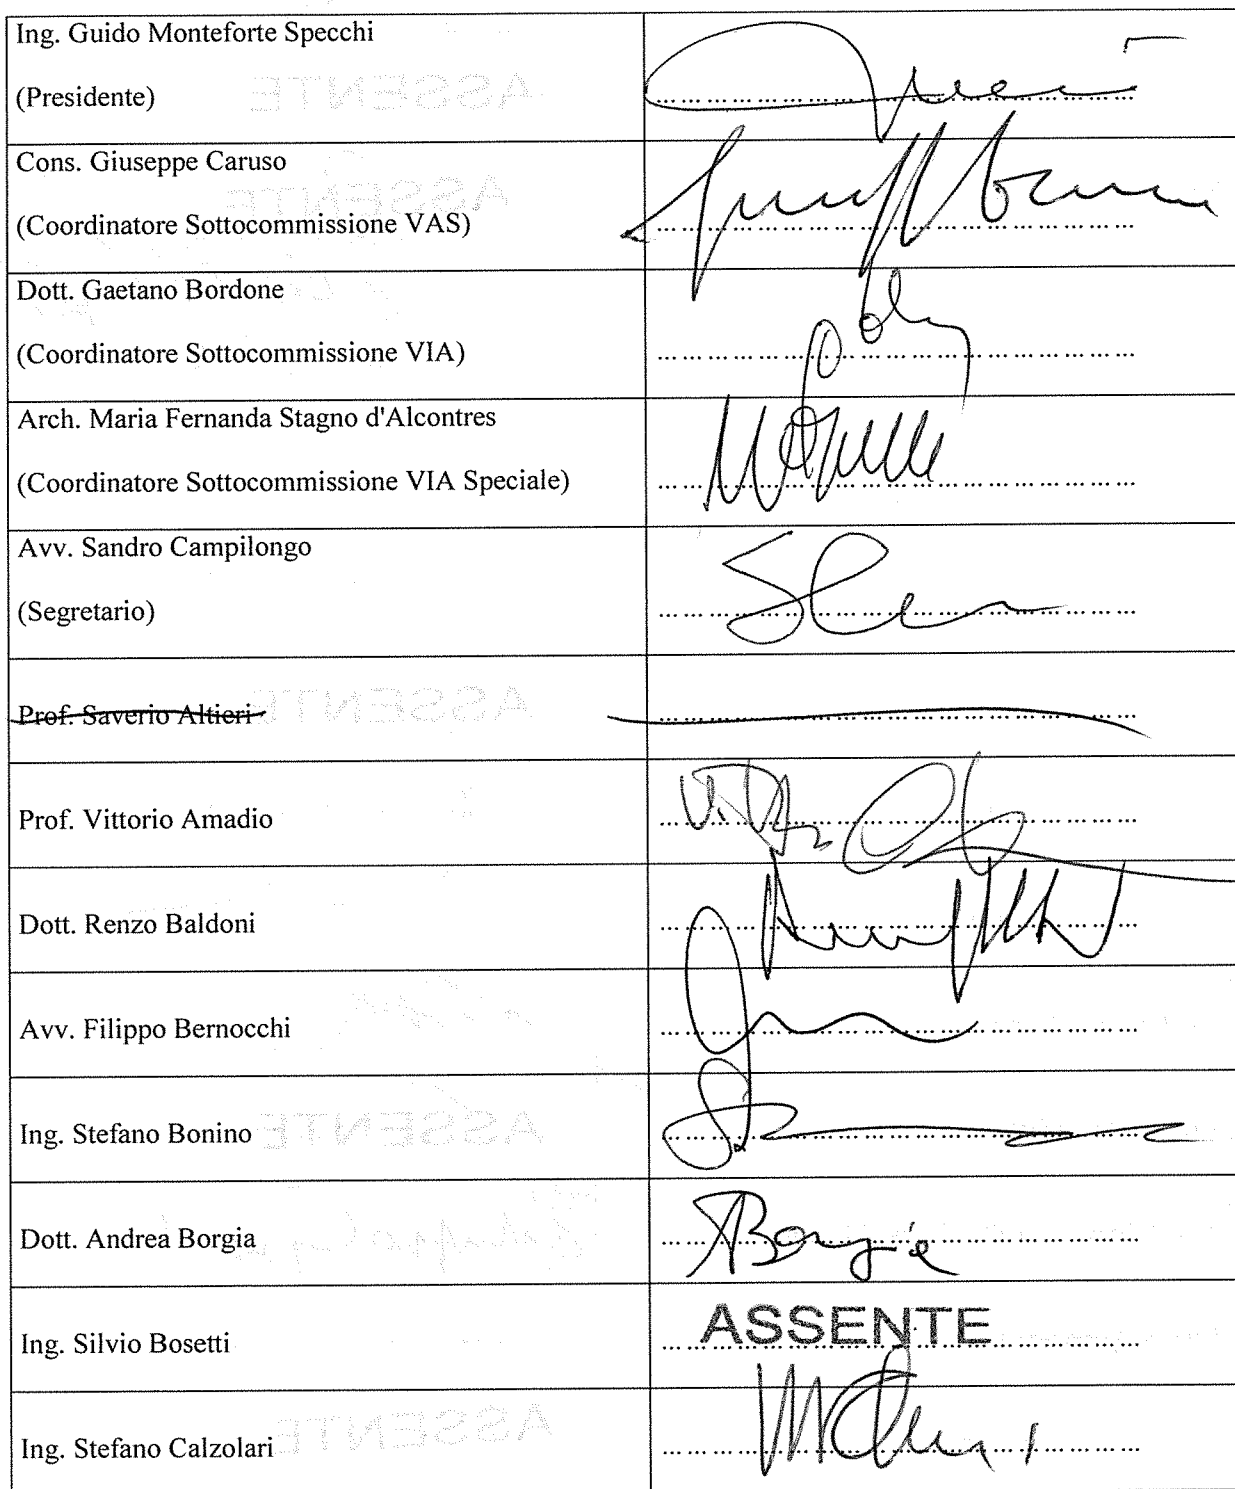 Ing. Guido Monteforte Specchi
(Presidente)
Cons. Giuseppe Caruso
(Coordinatore Sottocommissione VAS)
Dott. Gaetano Bordone
(Coordinatore Sottocommissione VIA)
Arch. Maria Fernanda Stagno d'Alcontres
(Coordinatore Sottocommissione VIA Speciale)
Avv. Sandro Campilongo
(Segretario)
Prof. Saverio Altieri
Prof. Vittorio Amadio
Dott. Renzo Baldoni
Avv. Filippo Bernocchi
Ing. Stefano Bonino
Dott. Andrea Borgia
ABorgia
Ing. Silvio Bosetti
ASSENTE
Ing. Stefano Calzolari